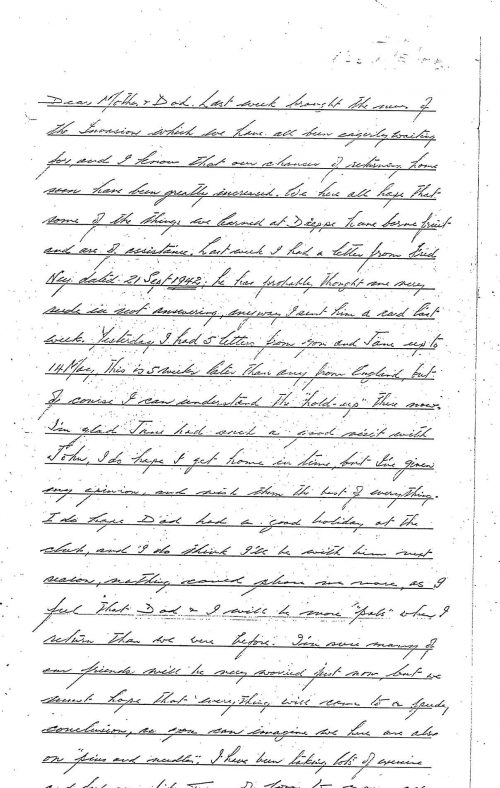 Dear Mother & Dad. Last week brought the news of
the Invasion which we have all been eagerly waiting
for, and I know that our chances of returning home
soon have been greatly increased. We here all hope that
some of the things we learned at Dieppe have borne fruit
and are of assistance. Last week I had a letter from
Ney dated 21 Sept 1942, he has probably thought me very
rude in not answering, anyway I sent him a card last
week. Yesterday I had 5 letters from you and Jane up to
14 May, this is 5 weeks later than any from England, but
of course I can understand the "hold-up" there now.
I'm glad Jane had such a good visit with
John, I do hope I get home in time, but I've given
my opinion, and wish them the best of everything.
I do hope Dad had a good holiday at the
club, and I do think I'll be with him next
season, nothing could please me more, as I
feel that Dad & I will be more "pals" when I
return than we were before. I'm sure many of
our friends will be very worried just now, but we
must hope that everything will come to a speedy
conclusion, as you can imagine we here are also
on "pins and needles". I have been taking lots of exercise